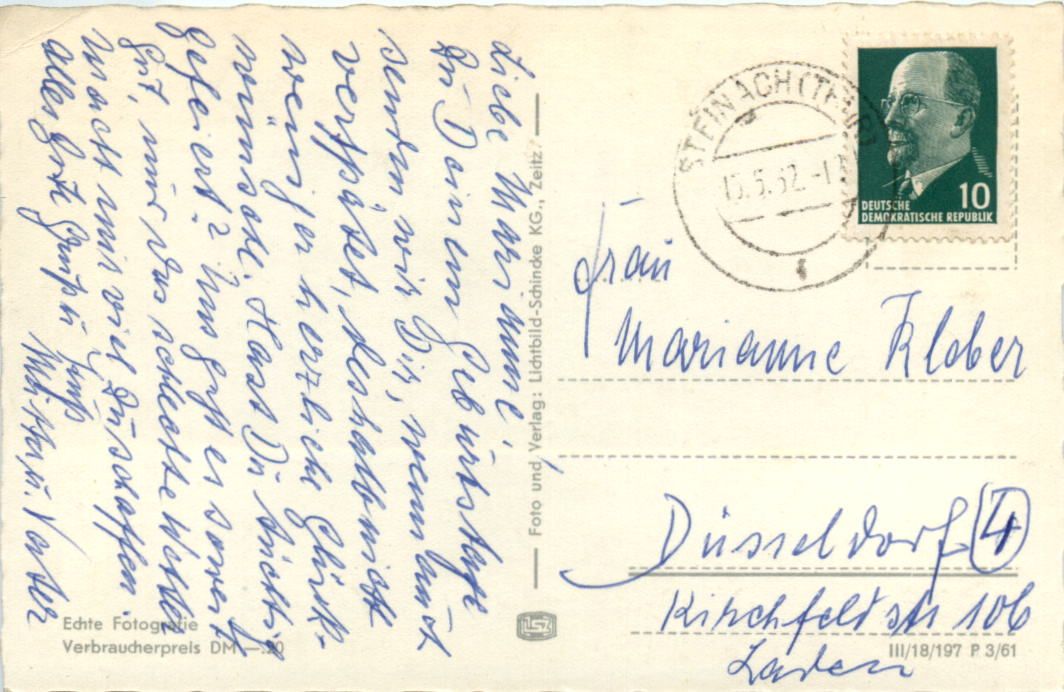 Liebe Marianne,
Zu Deinem Geburtstage
senden wir Dir, wenn auch
verspätet, deshalb nicht
weniger herzliche Glück-
wünsche. Hast Du tüchtig
gefeiert? Uns geht es soweit
gut, nur das schlechte Wetter
macht uns viel zu schaffen.
Alles Gute Gruß u. Kuß
Mutter u. Vater
Echte Fotografie
Verbraucherpreis DM —.20
Foto und Verlag: Lichtbild-Schincke KG., Zeitz
STEINACH (THÜR)
15.5.62.-1
DEUTSCHE
DEMOKRATISCHE REPUBLIK
10
Frau
Marianne Klober
Düsseldorf 4
Kirchfeldstr 106
Laden
III/18/197 P 3/61